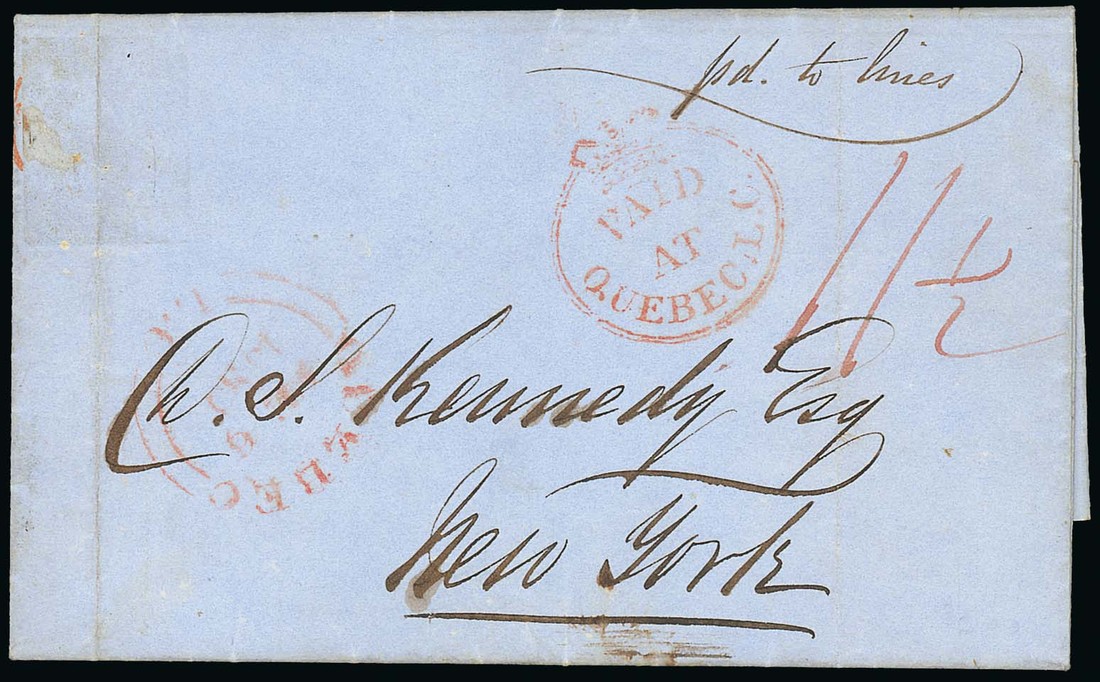 pd. to lines
PAID
AT
QUEBEC.L.C.
11 1/2
S. Kennedy Esq
New York